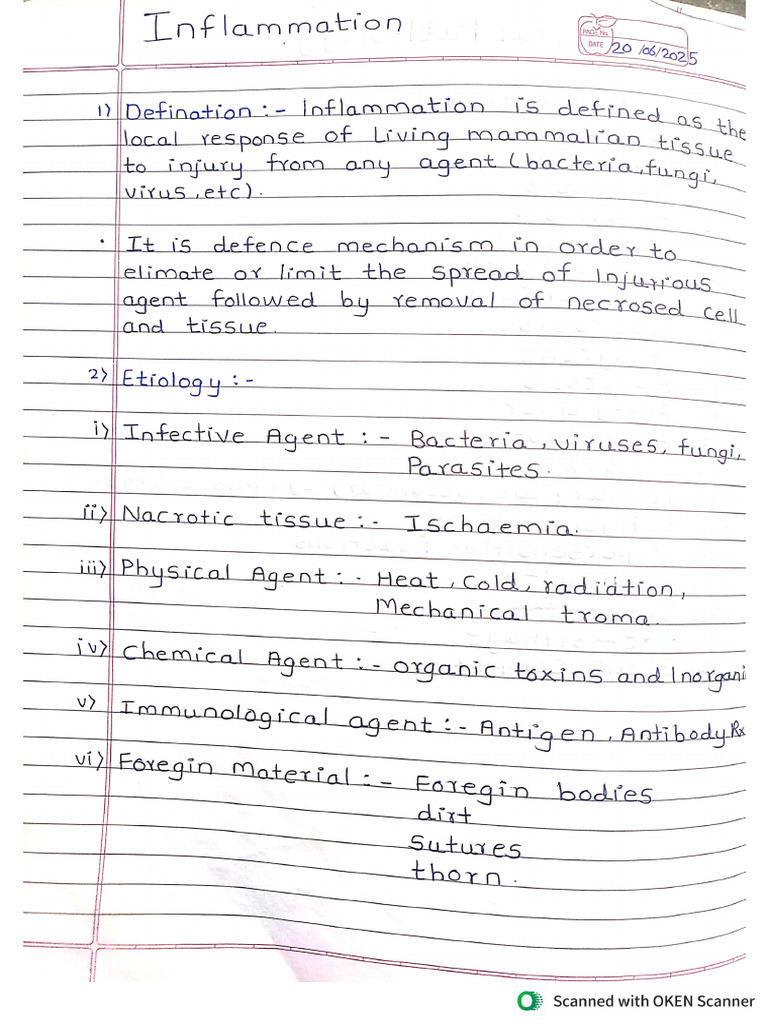 Inflammation
PAGE No.
DATE 20/06/2025
1) Defination :- Inflammation is defined as the
local response of Living mammalian tissue
to injury from any agent (bacteria, fungi,
virus, etc).
• It is defence mechanism in order to
elimate or limit the spread of Injurious
agent followed by removal of necrosed cell
and tissue.
2) Etiology :-
i) Infective Agent :- Bacteria, viruses, fungi,
Parasites.
ii) Nacrotic tissue :- Ischaemia.
iii) Physical Agent :- Heat, Cold, radiation,
Mechanical troma.
iv) Chemical Agent :- organic toxins and Inorgani
v) Immunological agent :- Antigen, Antibody Rx
vi) Foregin Material :- Foregin bodies
dirt
sutures
thorn.
Scanned with OKEN Scanner